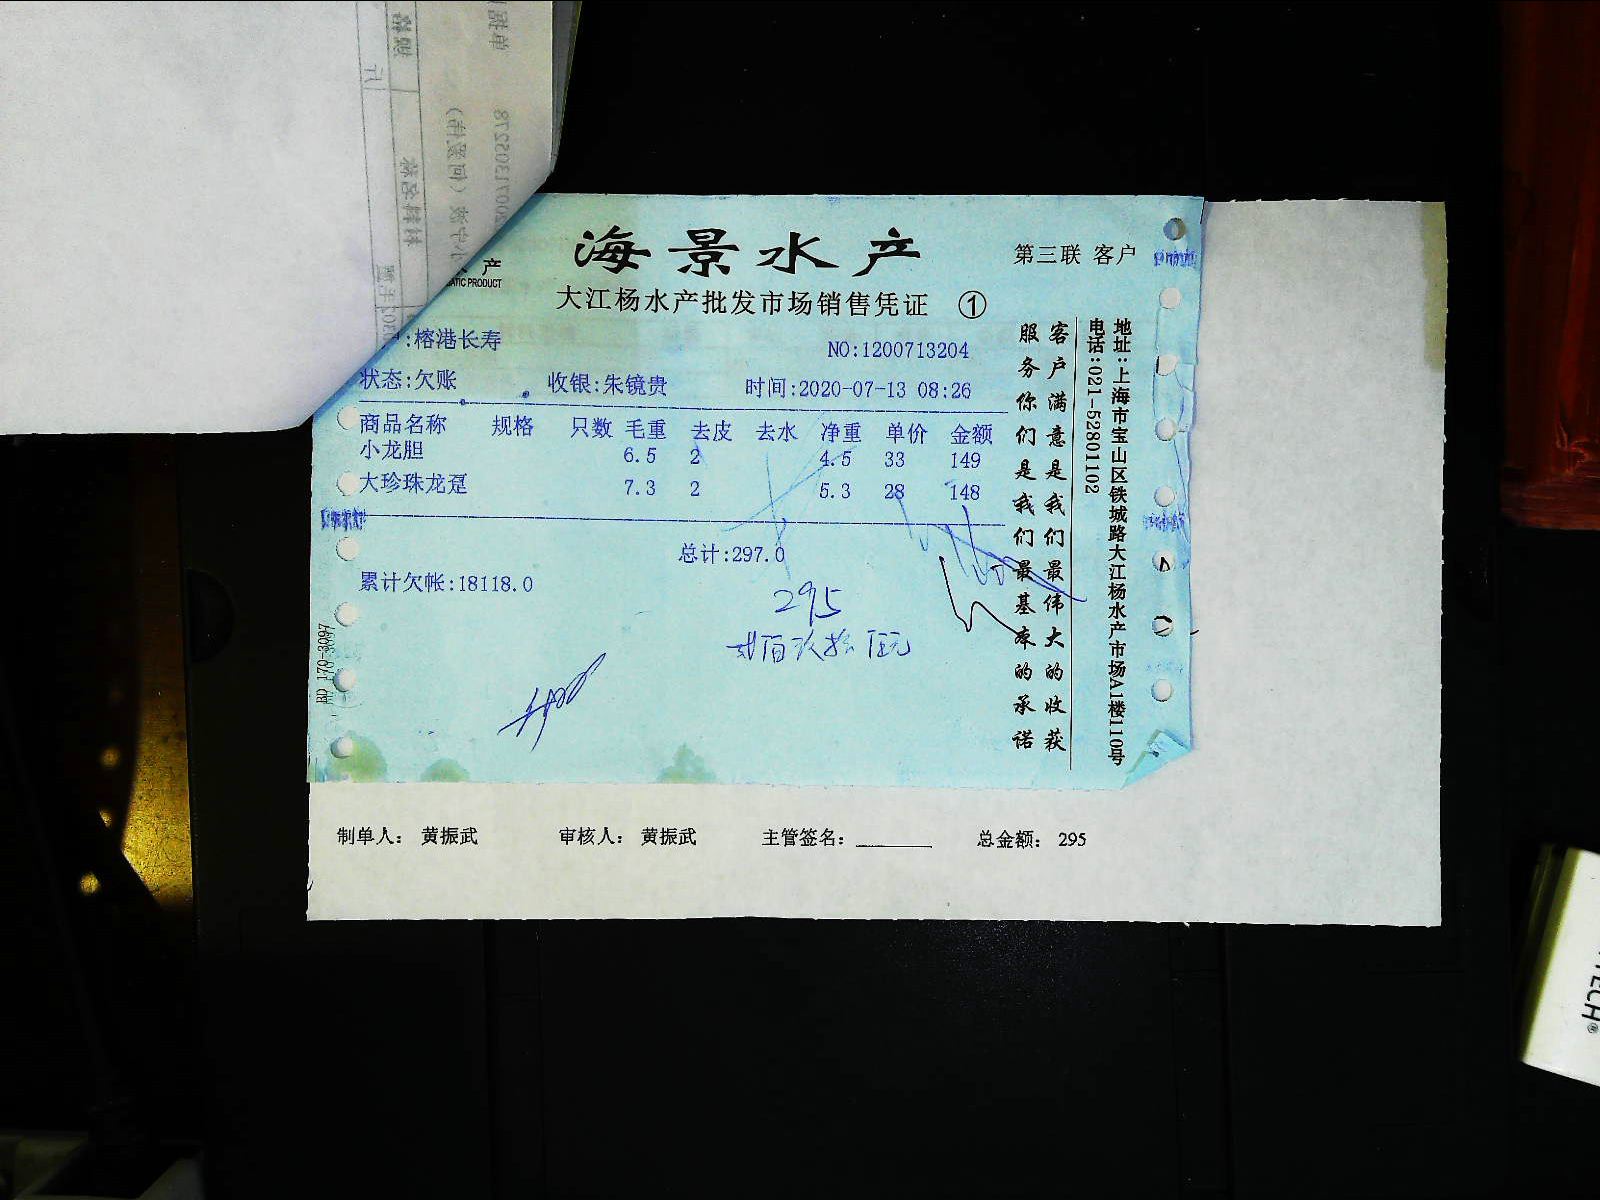 海景水产
第三联 客户
产
ATIC PRODUCT
大江杨水产批发市场销售凭证 ①
:榕港长寿
NO:1200713204
状态:欠账 收银:朱镜贵 时间:2020-07-13 08:26
商品名称 规格 只数 毛重 去皮 去水 净重 单价 金额
小龙胆 6.5 2 4.5 33 149
大珍珠龙趸 7.3 2 5.3 28 148
总计:297.0
累计欠帐:18118.0
295
贰佰玖拾伍元
客户满意是我们最伟大的收获
服务你们是我们最基本的承诺
地址:上海市宝山区铁城路大江杨水产市场A1楼110号
电话:021-52801102
制单人: 黄振武 审核人: 黄振武 主管签名: 总金额: 295